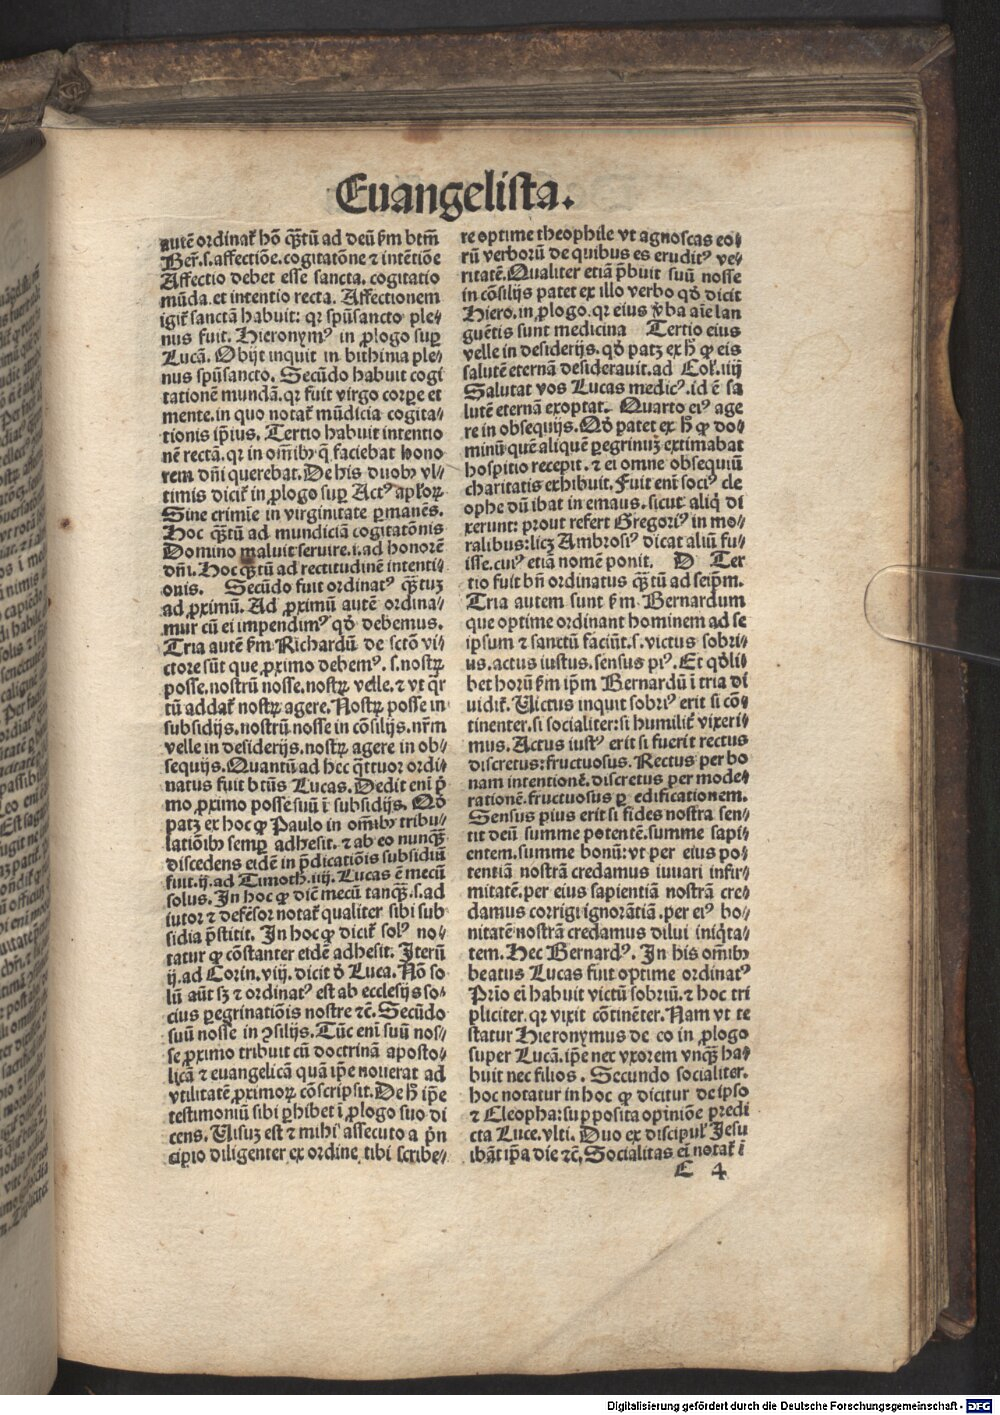 Euangelista.
autẽ ordinat̃ hõ q̃ꝫtũ ad deũ ẜm btm̃
Ber̃.s.affectiõe.cogitatõne ⁊ intẽtiõe
Affectio debet esse sancta. cogitatio
mũda. et intentio recta. Affectionem
igit̃ sanctã habuit: qꝛ spũsancto ple⸗
nus fuit. Hieronymꝰ in ꝓlogo suꝑ
Lucã. Obijt inquit in bithinia ple⸗
nus spũsancto. Secũdo habuit cogi
tationẽ mundã. qꝛ fuit virgo corꝑe et
mente. in quo notat̃ mũdicia cogita⸗
tionis ip̃ius. Tertio habuit intentio
nẽ rectã. qꝛ in om̃ibꝰ q̃ faciebat hono
rem dñi querebat. De his duobꝰ vl⸗
timis dicit̃ in ꝓlogo suꝑ Actꝰ apl̓oꝝ
Sine crimĩe in virginitate ꝑmanẽs.
Hoc q̃ꝫtũ ad mundiciã cogitatõnis
Domino maluit seruire. i. ad honorẽ
dñi. Hoc q̃ꝫtũ ad rectitudinẽ intenti⸗
onis. Secũdo fuit ordinatꝰ q̃ꝫtuꝫ
ad ꝓximũ. Ad ꝓximũ autẽ ordina⸗
mur cũ ei impendimꝰ qð debemus.
Tria autẽ ẜm Richardũ de sctõ vi⸗
ctore sũt que ꝓximo debemꝰ. s. nostꝝ
posse. nostrũ nosse. nostꝝ velle. ⁊ vt q̃r
tũ addat̃ nostꝝ agere. Nostꝝ posse in
subsidijs. nostrũ nosse in cõsilijs. nr̃m
velle in desiderijs. nostꝝ agere in ob⸗
sequijs. Quantũ ad hec q̃ttuor ordi⸗
natus fuit btũs Lucas. Dedit enĩ p̃
mo ꝓximo posse suũ ĩ subsidijs. Qð
patꝫ ex hoc ꝙ Paulo in om̃ibꝰ tribu⸗
latiõibꝰ semꝑ adhesit. ⁊ ab eo nunq̃ꝫ
discedens eidẽ in p̃dicatiõis subsidiũ
fuit. ij. ad Timoth. iiij. Lucas ẽ mecũ
solus. In hoc ꝙ diẽ mecũ tanq̃ꝫ. s. ad
iutor ⁊ defẽsor notat̃ qualiter sibi sub
sidia p̃stitit. In hoc ꝙ dicit̃ solꝰ no⸗
tatur ꝙ cõstanter eidẽ adhesit. Iterũ
ij. ad Corin. viij. dicit õ Luca. Nõ so
lũ aũt sꝫ ⁊ ordinatꝰ est ab ecclesijs so⸗
cius ꝑegrinatiõis nostre ⁊c̃. Secũdo
suũ nosse in ꝯsilijs. Tũc enĩ suũ nos⸗
se ꝓximo tribuit cũ doctrinã aposto⸗
licã ⁊ euangelicã quã ip̃e nouerat ad
vtilitatẽ ꝓximoꝝ cõscripsit. De h̃ ip̃e
testimoniũ sibi ꝑhibet ĩ ꝓlogo suo di
cens. Uisuꝫ est ⁊ mihi assecuto a p̃n
cipio diligenter ex ordine tibi scribe⸗
re optime theophile vt agnoscas eo⸗
rũ verborũ de quibus es eruditꝰ ve⸗
ritatẽ. Qualiter etiã p̃buit suũ nosse
in cõsilijs patet ex illo verbo qð dicit
Hiero. in ꝓlogo. qꝛ eius v̓ba aĩe lan
guẽtis sunt medicina Tertio eius
velle in desiderijs. qð patꝫ ex h̃ ꝙ eis
salutẽ eternã desiderauit. ad Col̓. iiij
Salutat vos Lucas medicꝰ. id ẽ sa
lutẽ eternã exoptat. Quarto eiꝰ age
re in obsequijs. Qð patet ex h̃ ꝙ do⸗
minũ quẽ aliquẽ ꝑegrinuꝫ extimabat
hospitio recepit. ⁊ ei omne obsequiũ
charitatis exhibuit. Fuit enĩ sociꝰ cle
ophe dũ ibat in emaus. sicut aliq̃ di
xerunt: prout refert Gregoriꝰ in mo⸗
ralibus: licꝫ Ambrosiꝰ dicat aliũ fu⸗
isse. cuiꝰ etiã nomẽ ponit. D Ter
tio fuit bñ ordinatus q̃ꝫtũ ad seip̃m.
Tria autem sunt ẜm Bernardum
que optime ordinant hominem ad se
ipsum ⁊ sanctũ faciũt. s. victus sobri⸗
us. actus iustus. sensus piꝰ. Et qðli⸗
bet horũ ẜm ip̃m Bernardũ ĩ tria di
uidit̃. Uictus inquit sobriꝰ erit si cõ⸗
tinenter. si socialiter: si humilit̃ vixeri⸗
mus. Actus iustꝰ erit si fuerit rectus
discretus: fructuosus. Rectus per bo
nam intentionẽ. discretus per mode⸗
rationẽ. fructuosus ꝑ edificationem.
Sensus pius erit si fides nostra sen⸗
tit deũ summe potentẽ. summe sapi⸗
entem. summe bonũ: vt per eius po⸗
tentiã nostrã credamus iuuari infir⸗
mitatẽ. per eius sapientiã nostrã cre⸗
damus corrigi ignorãtiã. per eiꝰ bo⸗
nitatẽ nostrã credamus dilui iniq̃ta⸗
tem. Hec Bernardꝰ. In his om̃ibꝰ
beatus Lucas fuit optime ordinatꝰ
Prĩo eĩ habuit victũ sobriũ. ⁊ hoc tri
pliciter. qꝛ vixit cõtinẽter. Nam vt te
statur Hieronymus de eo in ꝓlogo
super Lucã. ip̃e nec vxorem vnq̃ꝫ ha⸗
buit nec filios. Secundo socialiter.
hoc notatur in hoc ꝙ dicitur de ipso
⁊ Cleopha: supposita opiniõe predi
cta Luce. vlti. Duo ex discipul̓ Jesu
ibãt ip̃a die ⁊c̃. Socialitas eĩ notat̃ ĩ
E 4
Digitalisierung gefördert durch die Deutsche Forschungsgemeinschaft - DFG